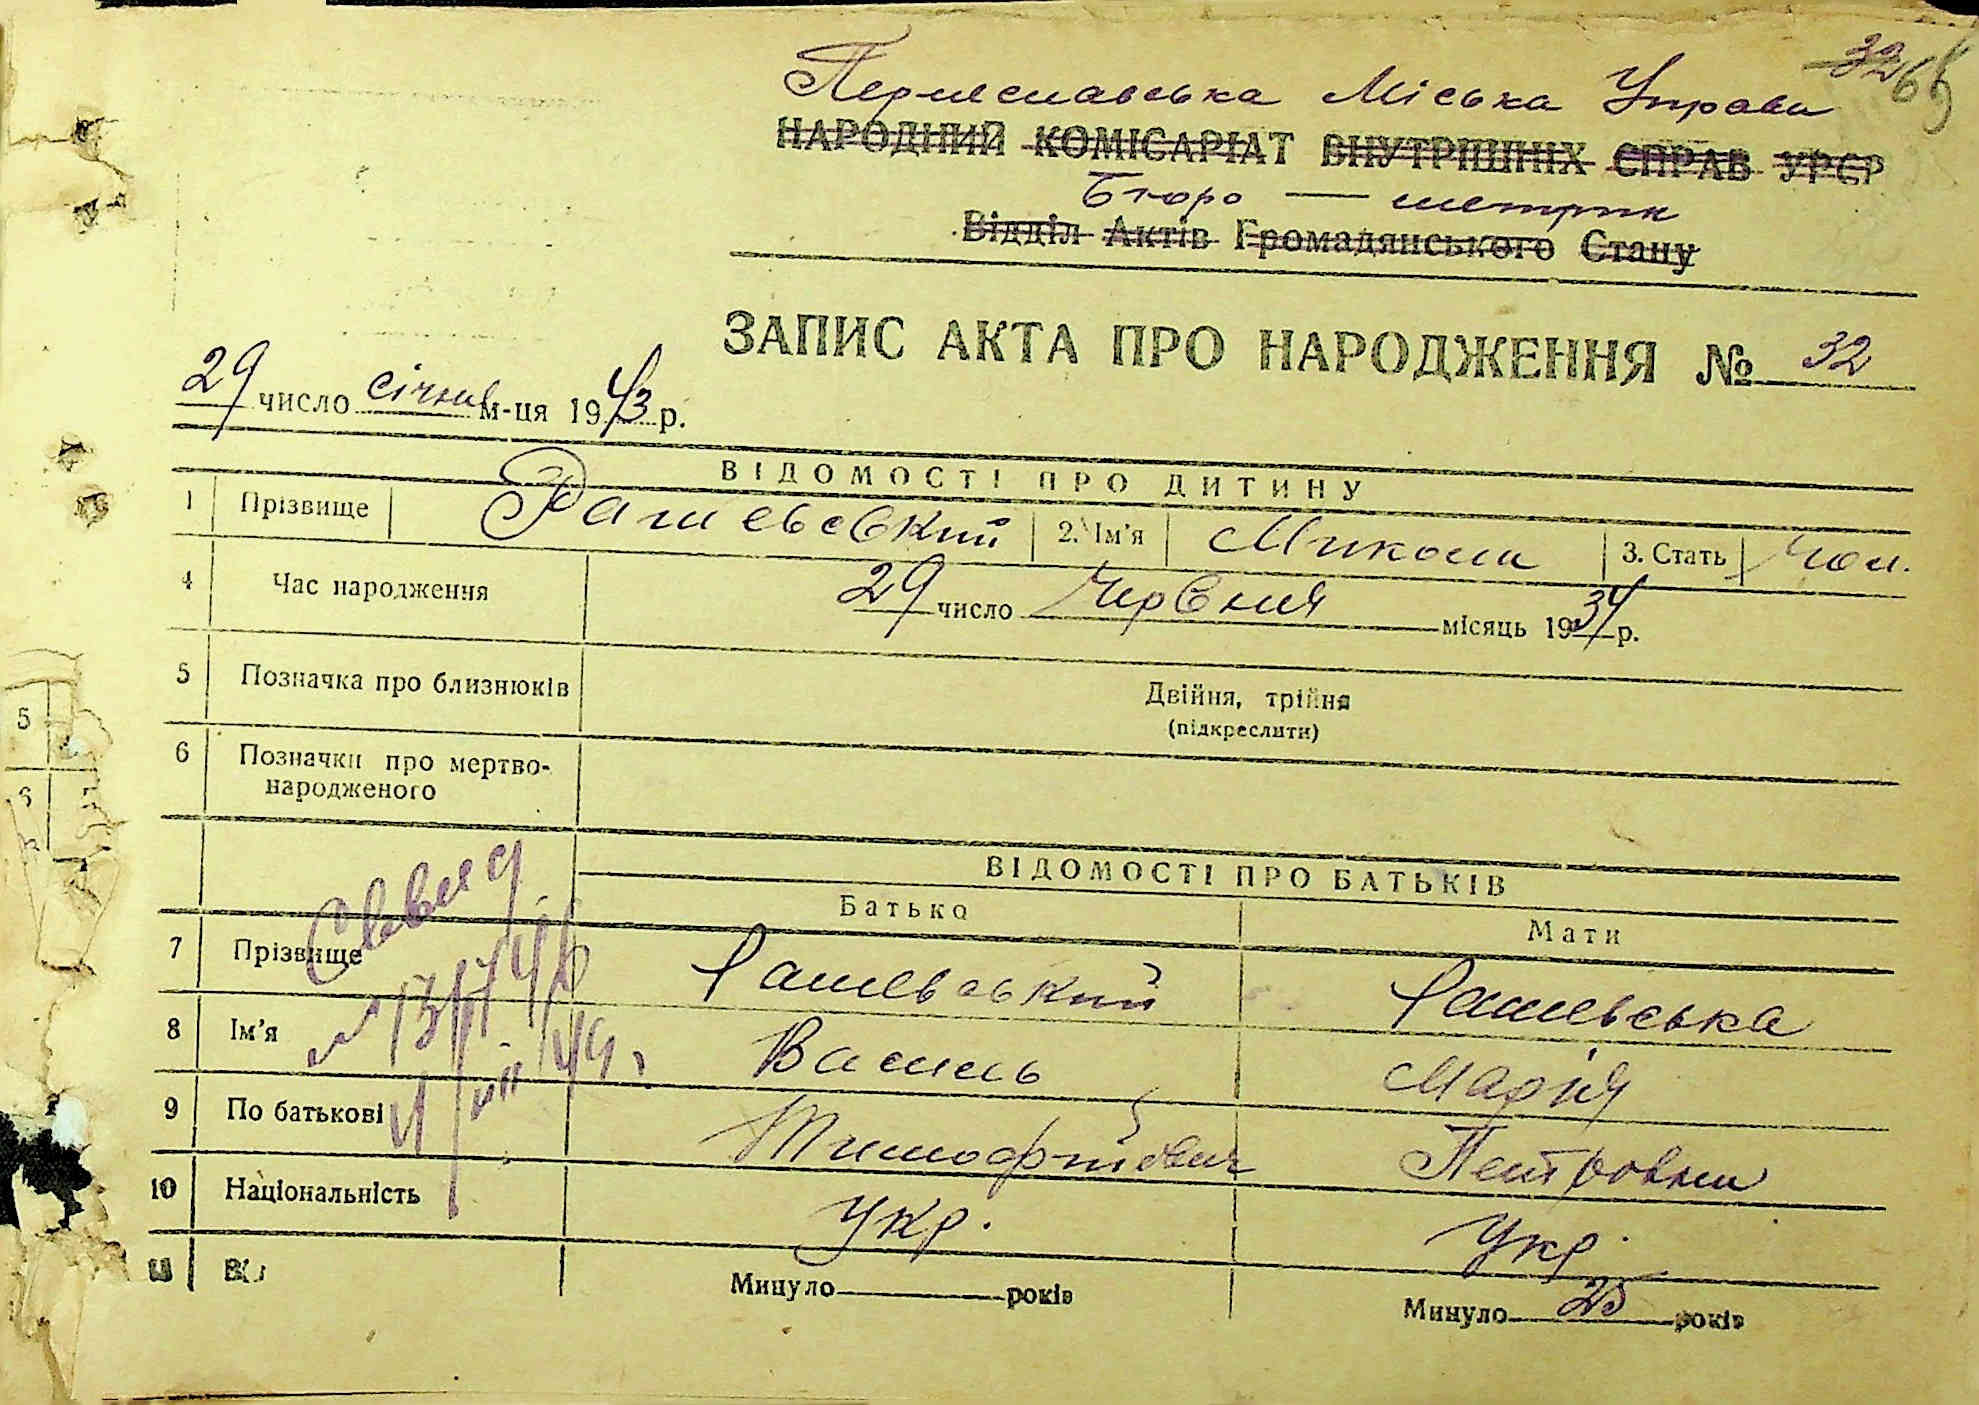 32 65
Переяславська Міська Управа
НАРОДНИЙ КОМІСАРІАТ ВНУТРІШНІХ СПРАВ УРСР
Бюро — метрик
Відділ Актів Громадянського Стану
ЗАПИС АКТА ПРО НАРОДЖЕННЯ № 32
29 число січня м-ця 1943 р.
ВІДОМОСТІ ПРО ДИТИНУ
1 Прізвище Рашевський 2. Ім'я Микола 3. Стать Чол.
4 Час народження 29 число Червня місяць 1934 р.
5 Позначка про близнюків Двійня, трійня
(підкреслити)
6 Позначки про мертво-
народженого
ВІДОМОСТІ ПРО БАТЬКІВ
Батько Мати
7 Прізвище Рашевський Рашевська
8 Ім'я Василь Марія
9 По батькові Тимофійович Петровна
10 Національність Укр. Укр.
11 Минуло років Минуло 25 років
5
6